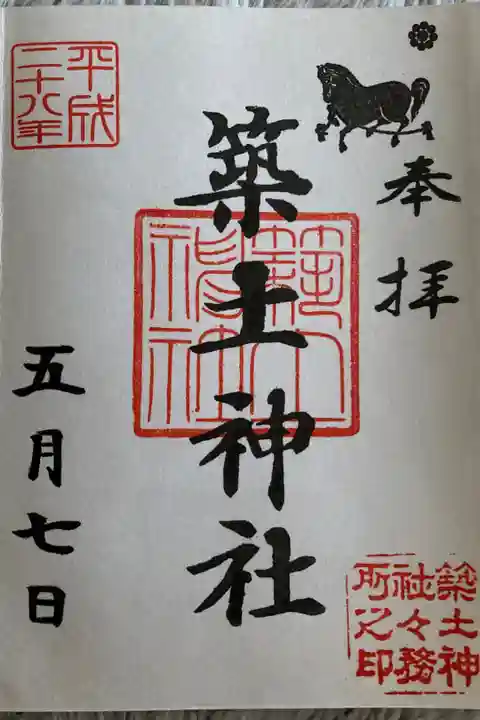 奉拝
築土神社
築土神社
平成二十八年
五月七日
築土神社々務所之印